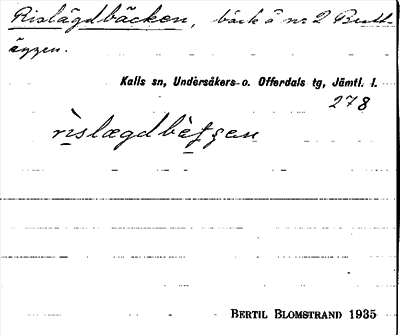 Rislägdbäcken, bäck å nr 2 Butt-
äggen.
Kalls sn, Undersåkers o. Offerdals tg, Jämtl. l.
278
BERTIL BLOMSTRAND 1935